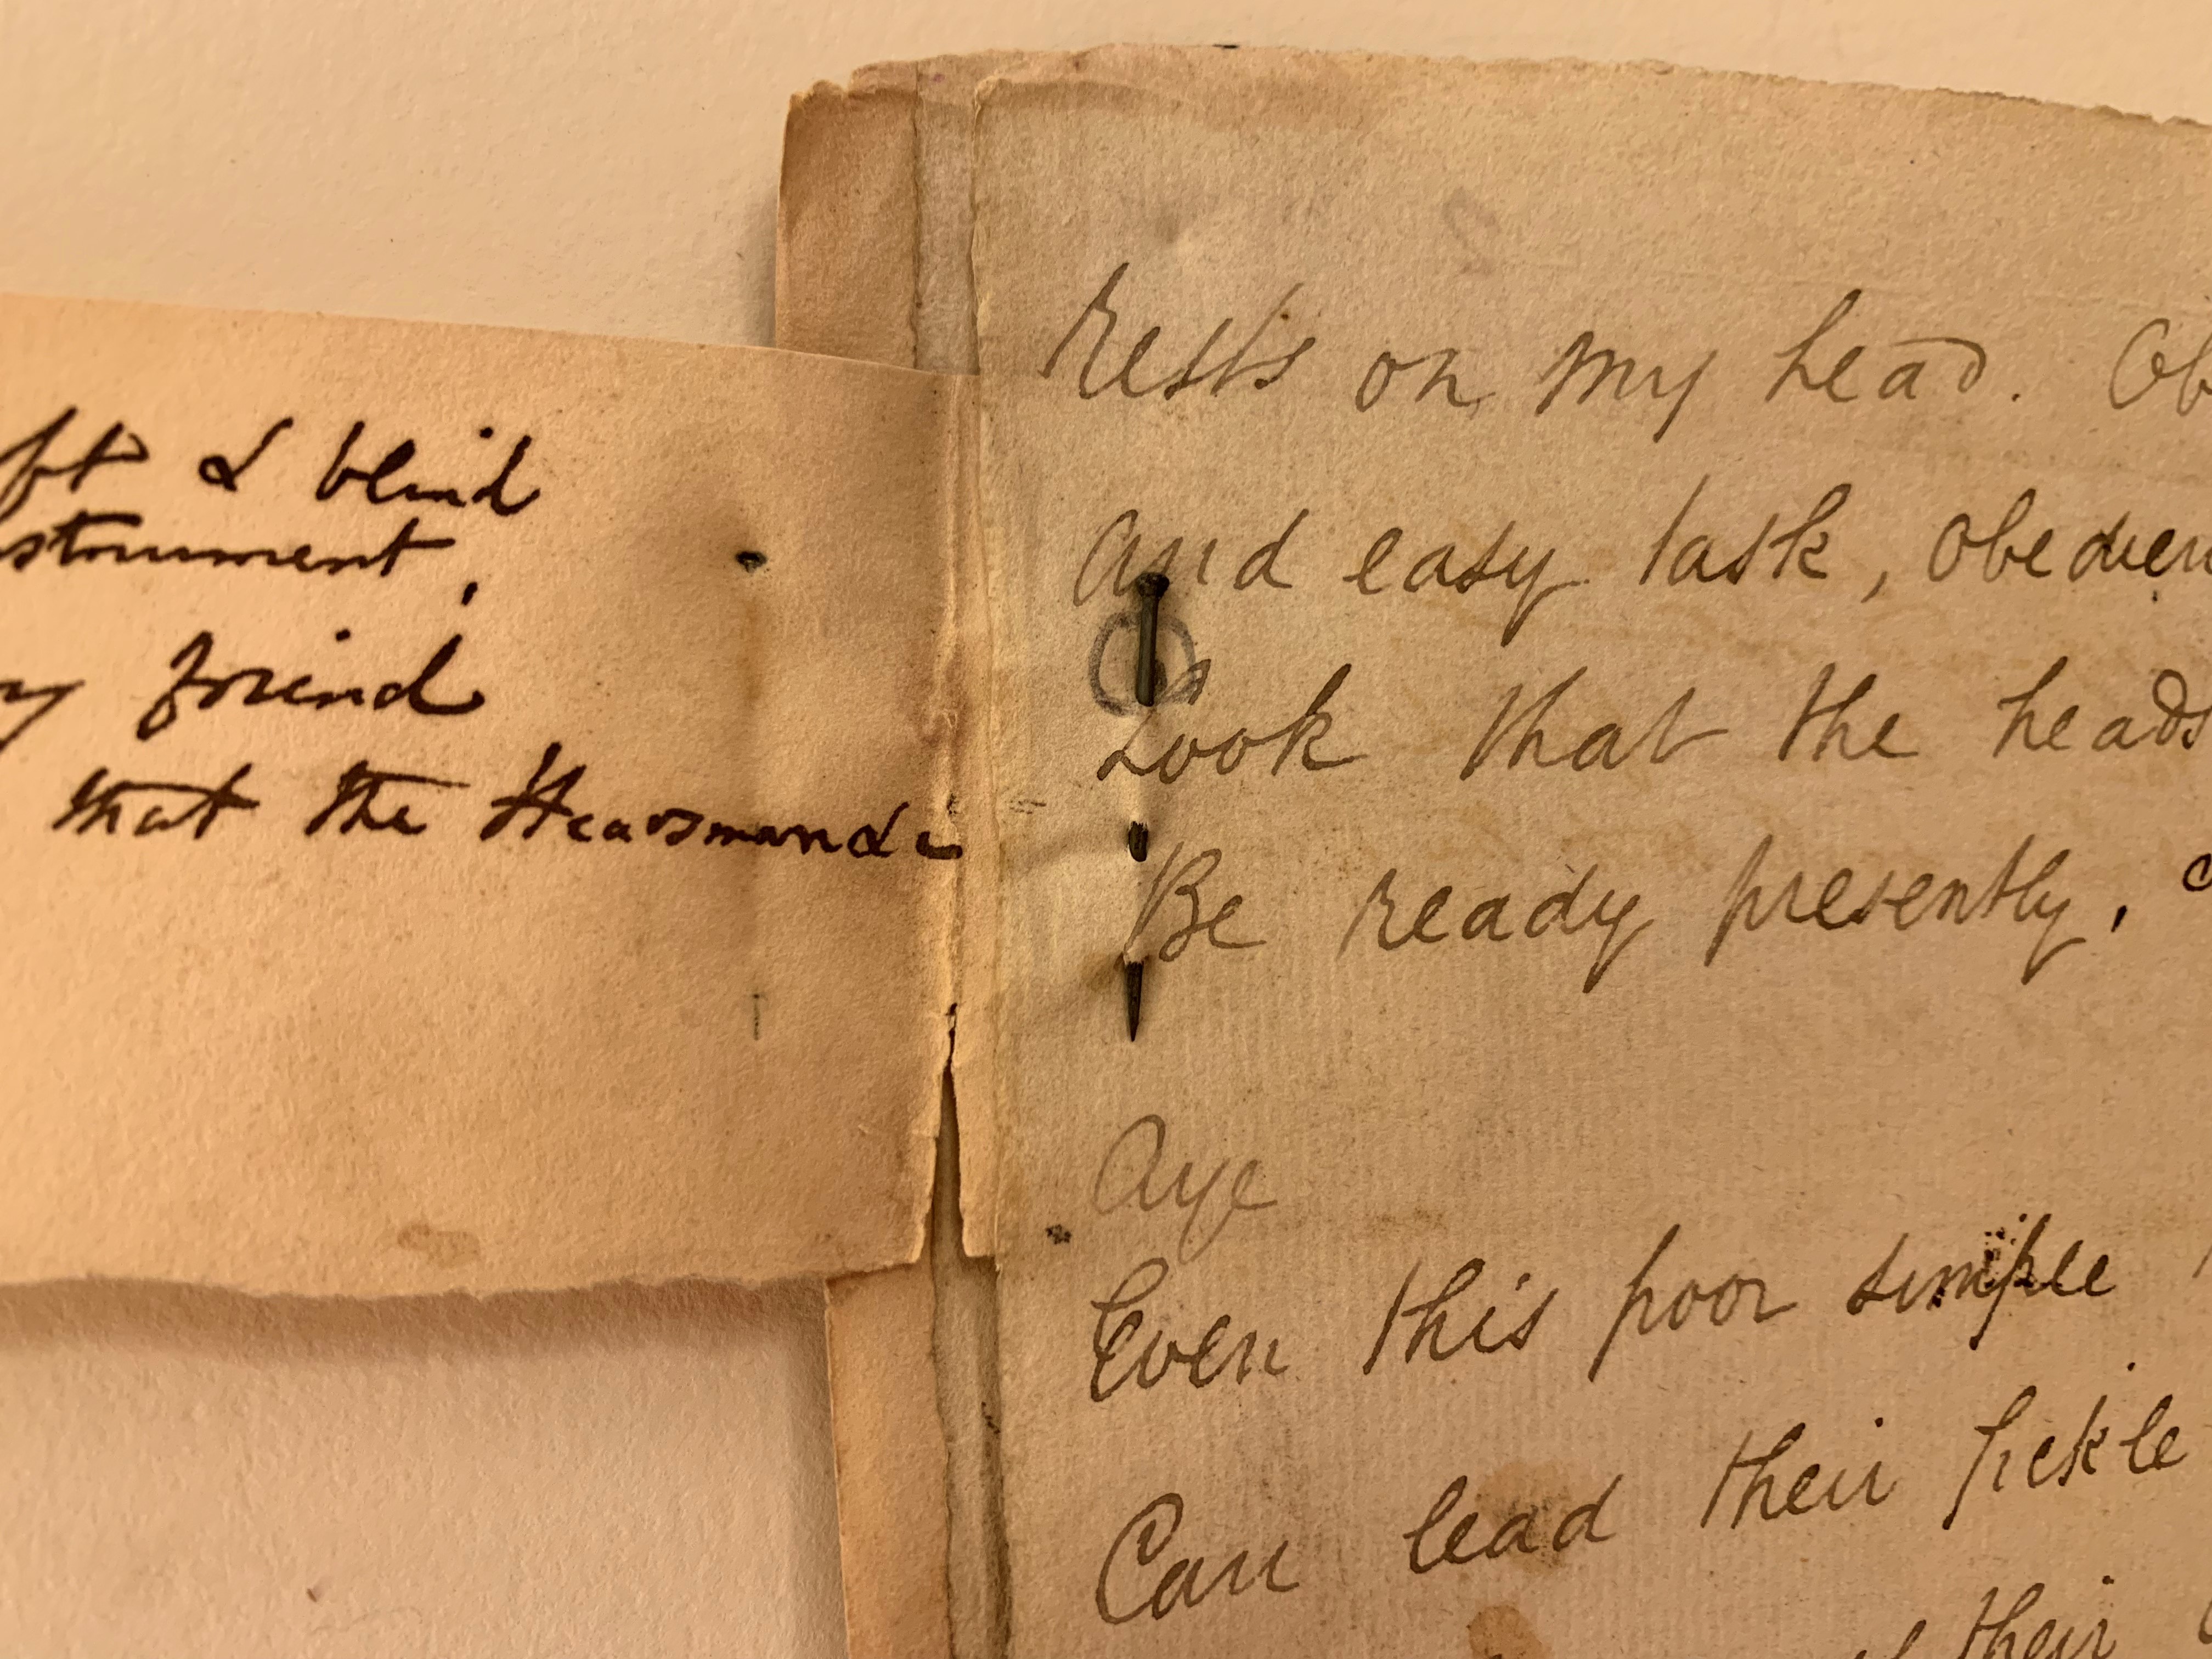 & blind
my friend
that the Headsman &c
rests on my head. Ob
and easy task, obedien
Look that the heads
Be ready presently,
Aye
Even this poor simple
Can lead their fickle
their